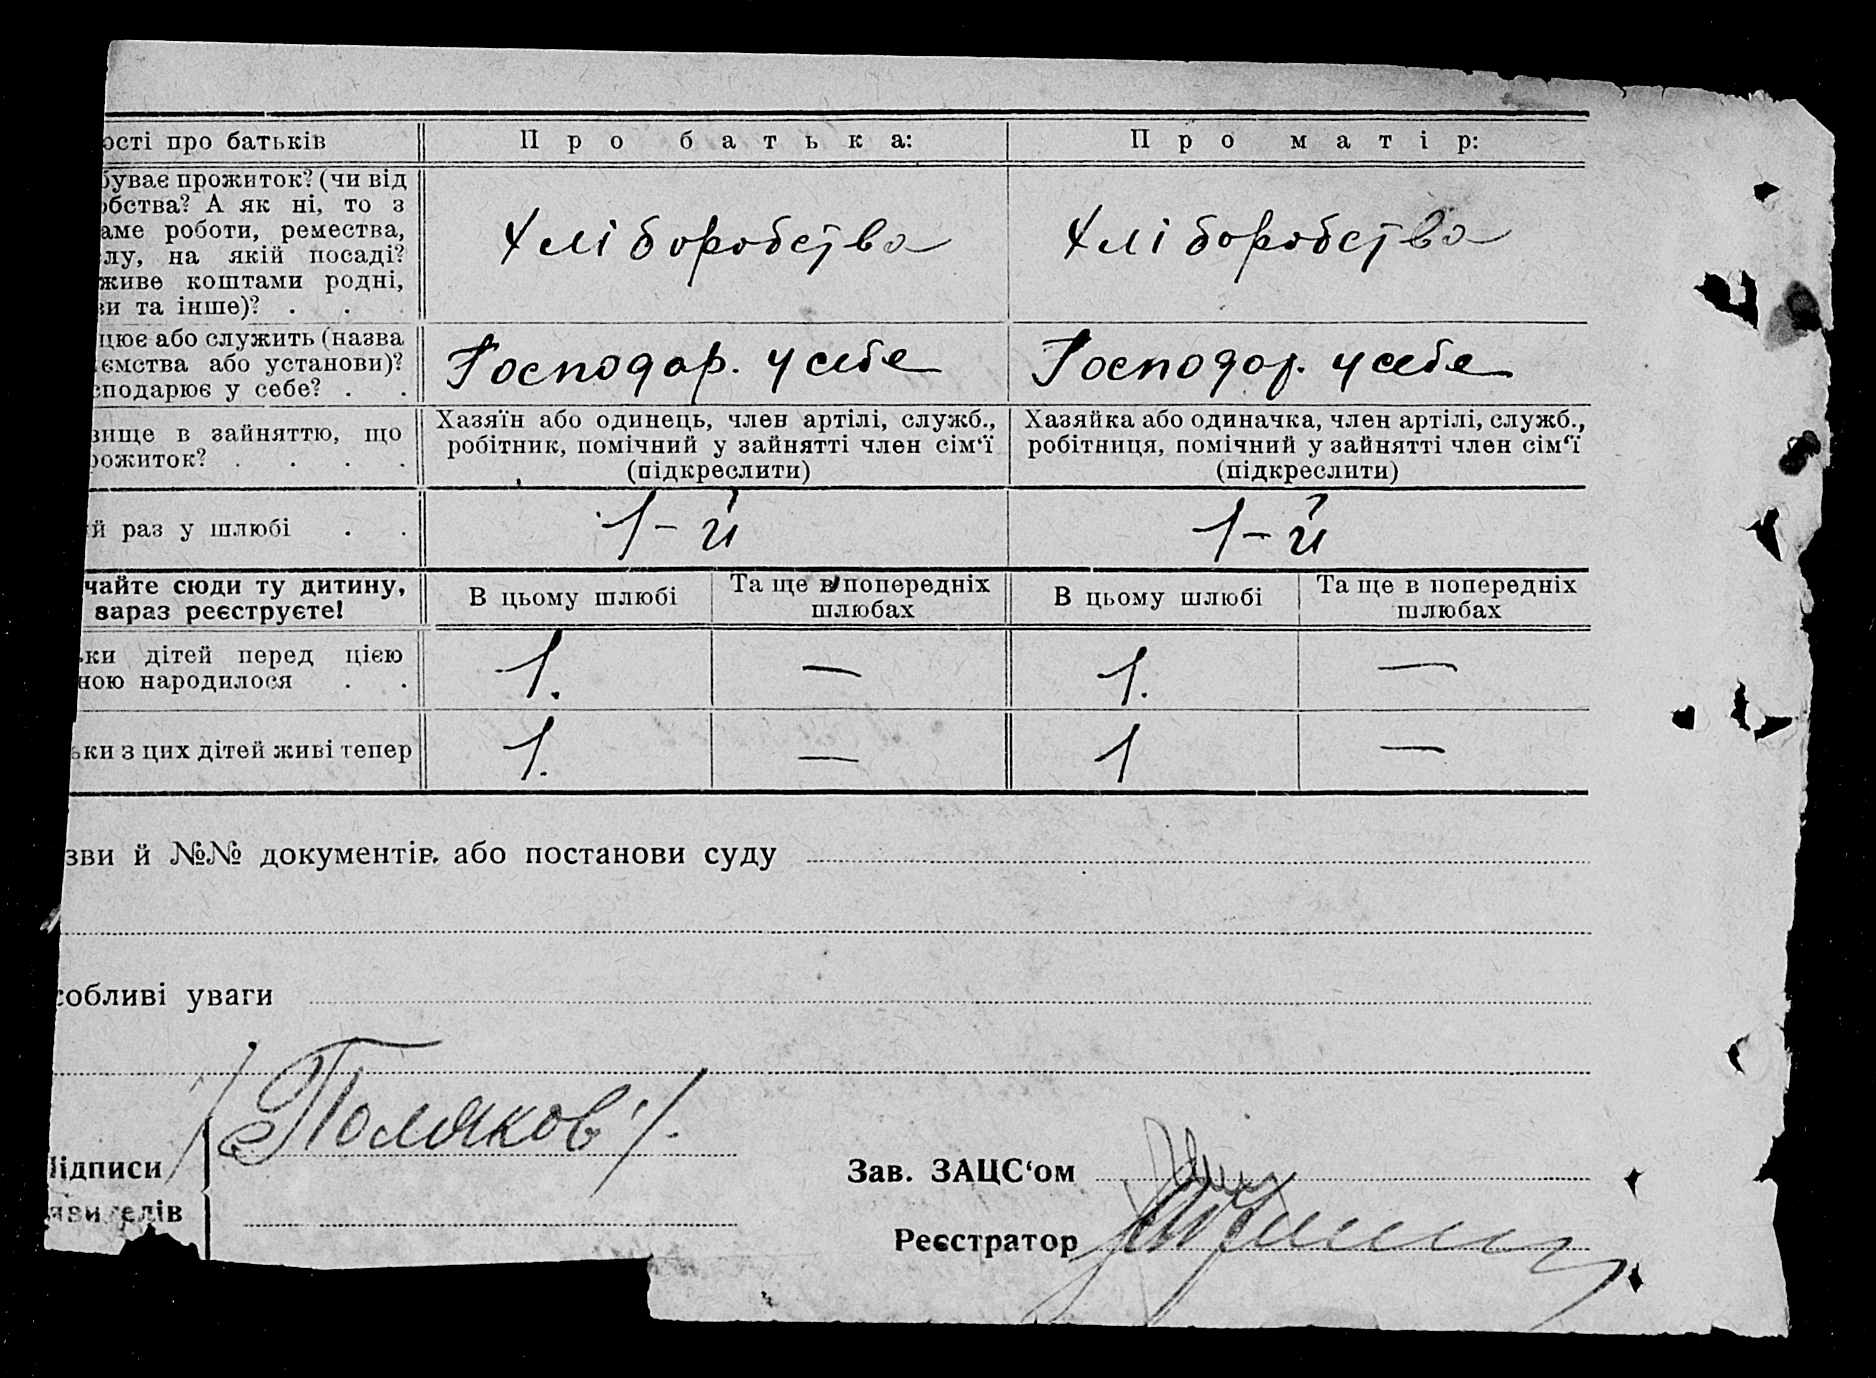 ості про батьків
Про батька:
Про матір:
буває прожиток? (чи від
обства? А як ні, то з
аме роботи, ремества,
слу, на якій посаді?
живе коштами родні,
ви та інше)? . .
Хліборобства
Хліборобства
цює або служить (назва
ємства або установи)?
сподарює у себе? . .
Господар. у себе
Господар. у себе
вище в зайняттю, що
рожиток? . . . .
Хазяїн або одинець, член артілі, служб.,
робітник, помічний у зайнятті член сім‘ї
(підкреслити)
Хазяйка або одиначка, член артілі, служб.,
робітниця, помічний у зайнятті член сім‘ї
(підкреслити)
ий раз у шлюбі . .
1-й
1-й
чайте сюди ту дитину,
зараз реєструєте!
В цьому шлюбі
Та ще в попередніх
шлюбах
В цьому шлюбі
Та ще в попередніх
шлюбах
ьки дітей перед цією
ною народилося . .
1. — 1. —
ьки з цих дітей живі тепер
1. — 1 —
зви й №№ документів, або постанови суду
собливі уваги
/Поляков/.
Підписи
явителів
Зав. ЗАЦС‘ом
Реєстратор